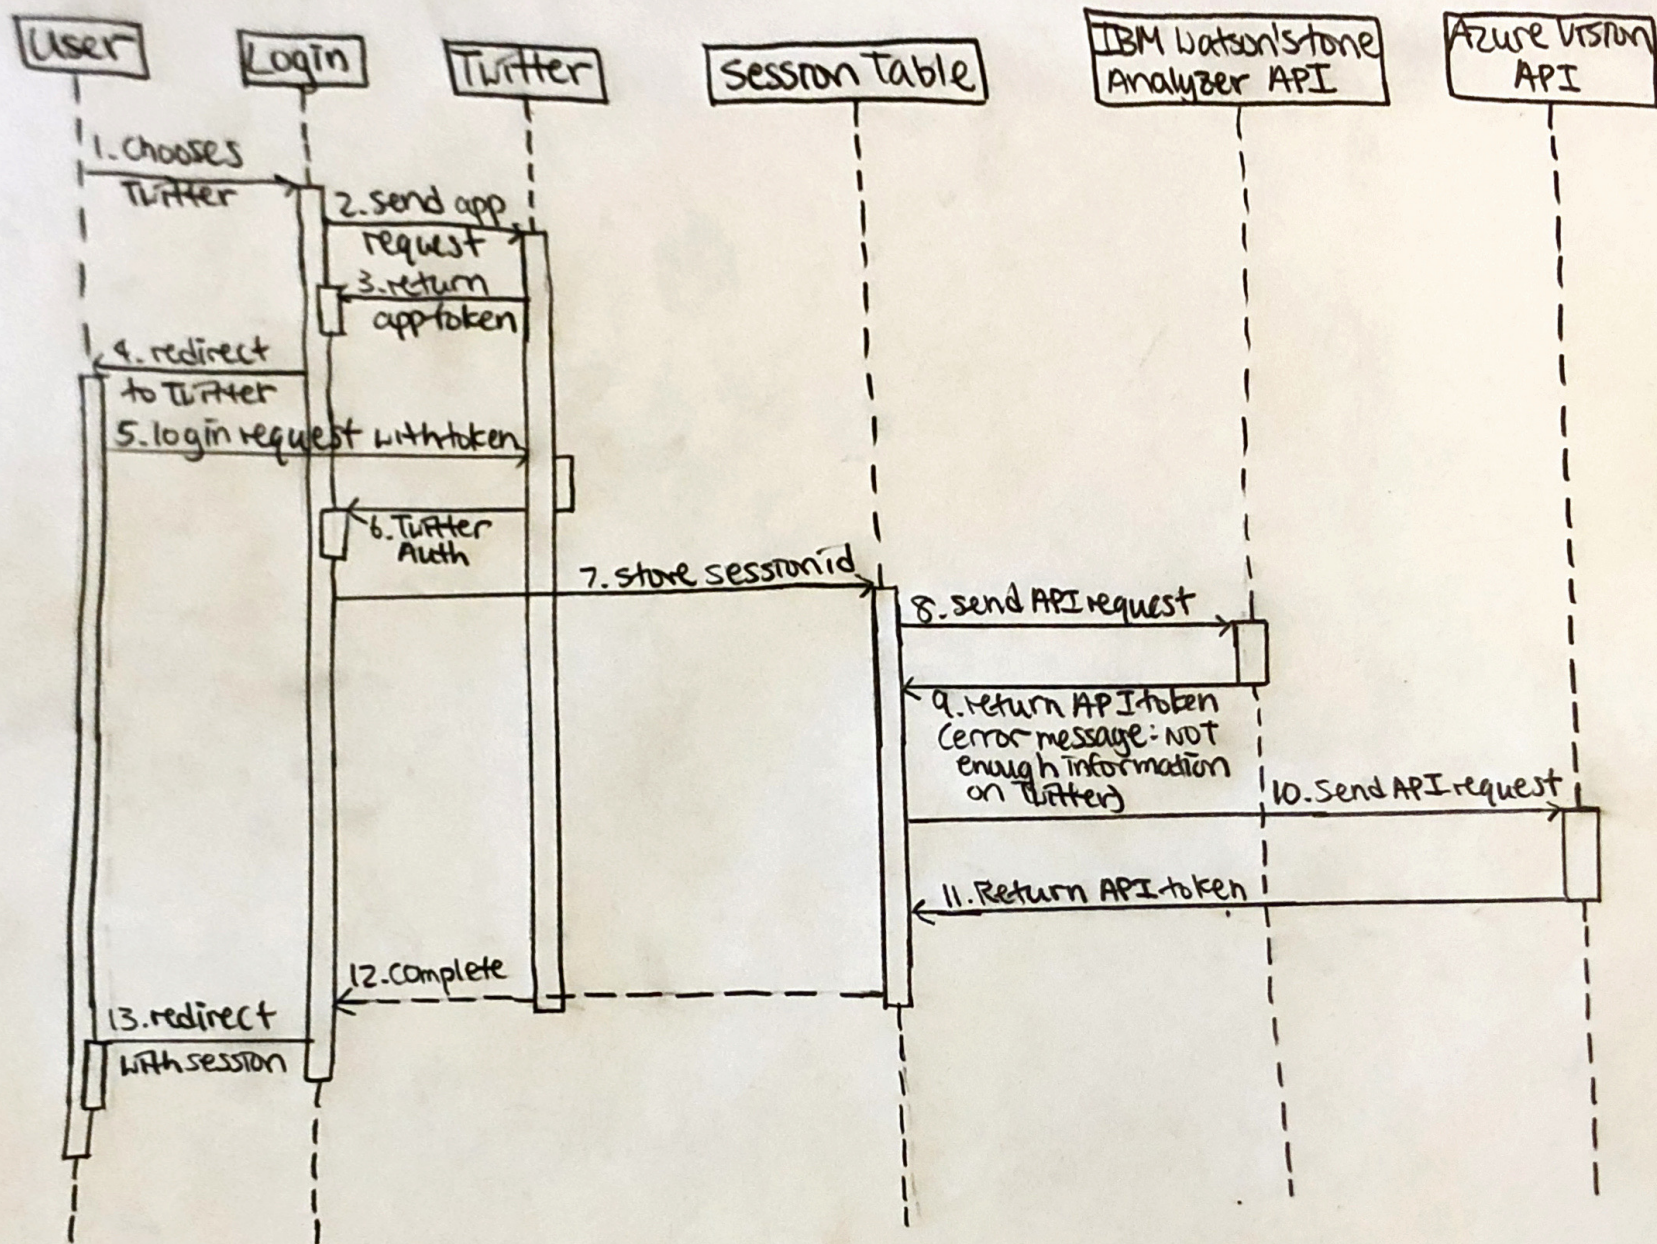 User
Login
Twitter
Session Table
IBM Watson's tone
Analyzer API
Azure Vision
API
1. Chooses
Twitter
2. send app
request
3. return
app token
4. redirect
to Twitter
5. login request with token
6. Twitter
Auth
7. store session id
8. send API request
9. return API token
(error message: NOT
enough information
on Twitter)
10. Send API request
11. Return API token
12. complete
13. redirect
with session